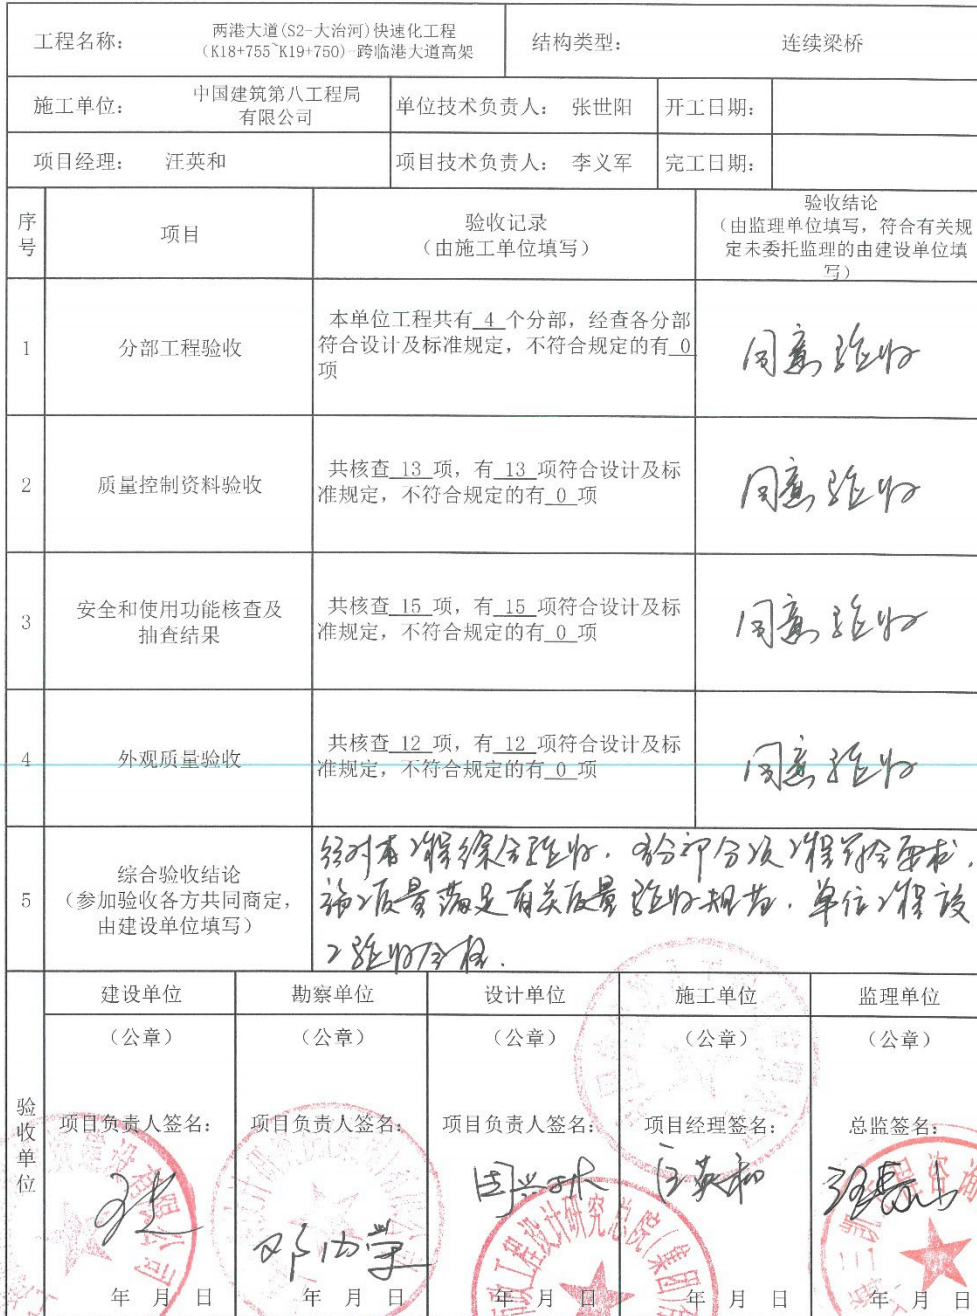 工程名称： 两港大道(S2-大治河)快速化工程 结构类型： 连续梁桥
(K18+755~K19+750)-跨临港大道高架
施工单位： 中国建筑第八工程局 单位技术负责人： 张世阳 开工日期：
有限公司
项目经理： 汪英和 项目技术负责人： 李义军 完工日期：
序号 项目 验收记录 验收结论
（由施工单位填写） （由监理单位填写，符合有关规
定未委托监理的由建设单位填
写）
1 分部工程验收 本单位工程共有 4 个分部，经查各分部
符合设计及标准规定，不符合规定的有 0
项
同意验收
2 质量控制资料验收 共核查 13 项，有 13 项符合设计及标
准规定，不符合规定的有 0 项
同意验收
3 安全和使用功能核查及 共核查 15 项，有 15 项符合设计及标
抽查结果 准规定，不符合规定的有 0 项
同意验收
4 外观质量验收 共核查 12 项，有 12 项符合设计及标
准规定，不符合规定的有 0 项
同意验收
5 综合验收结论
（参加验收各方共同商定，
由建设单位填写）
经对本工程综合验收，各分部分项工程符合要求，
施工质量满足有关质量验收规范，单位工程竣
工验收合格.
验收单位 建设单位 勘察单位 设计单位 施工单位 监理单位
（公章） （公章） （公章） （公章） （公章）
项目负责人签名： 项目负责人签名： 项目负责人签名： 项目经理签名： 总监签名：
汪英和
年 月 日 年 月 日 年 月 日 年 月 日 年 月 日